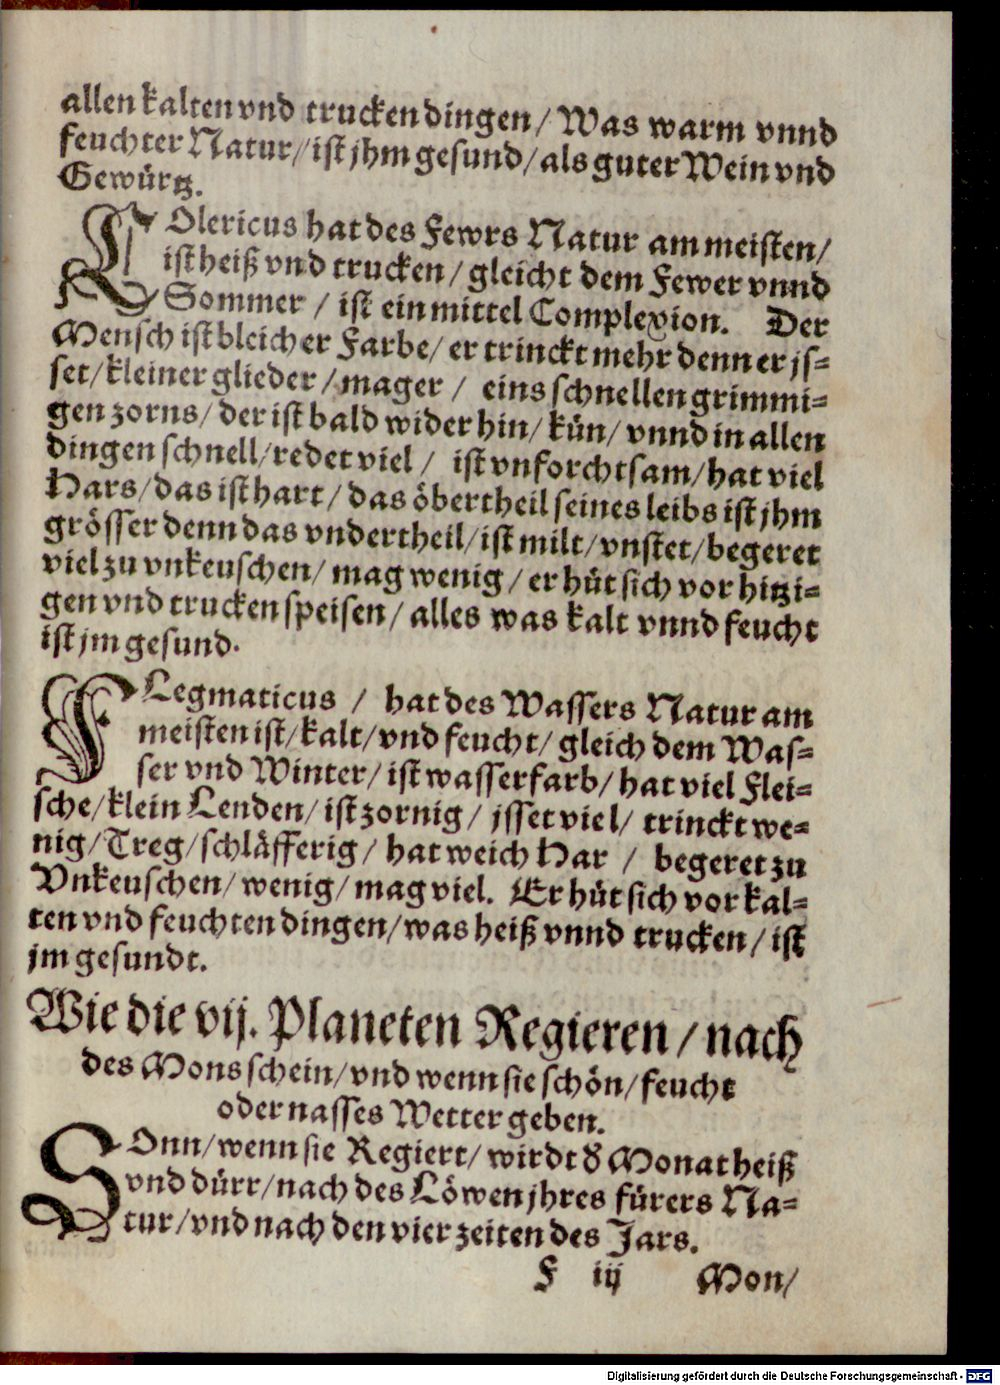 allen kalten vnd trucken dingen / Was warm vnnd
feuchter Natur / ist jhm gesund / als guter Wein vnd
Gewürtz.
KOlericus hat des Fewrs Natur am meisten /
ist heiß vnd trucken / gleicht dem Fewer vnnd
Sommer / ist ein mittel Complexion. Der
Mensch ist bleicher Farbe / er trinckt mehr denn er js-
set / kleiner glieder / mager / eins schnellen grimmi-
gen zorns / der ist bald wider hin / kün / vnnd in allen
dingen schnell / redet viel / ist vnforchtsam / hat viel
Hars / das ist hart / das öbertheil seines leibs ist jhm
grösser denn das vndertheil / ist milt / vnstet / begeret
viel zu vnkeuschen / mag wenig / er hüt sich vor hitzi-
gen vnd trucken speisen / alles was kalt vnnd feucht
ist jm gesund.
FLegmaticus / hat des Wassers Natur am
meisten ist / kalt / vnd feucht / gleich dem Was-
ser vnd Winter / ist wasserfarb / hat viel Flei-
sche / klein Lenden / ist zornig / jsset viel / trinckt we-
nig / Treg / schläfferig / hat weich Har / begeret zu
Vnkeuschen / wenig / mag viel. Er hüt sich vor kal-
ten vnd feuchten dingen / was heiß vnnd trucken / ist
jm gesundt.
Wie die vij. Planeten Regieren / nach
des Mons schein / vnd wenn sie schön / feucht
oder nasses Wetter geben.
SOnn / wenn sie Regiert / wirdt ð Monat heiß
vnd dürr / nach des Löwen jhres fürers Na-
tur / vnd nach den vier zeiten des Jars.
F iij Mon/
Digitalisierung gefördert durch die Deutsche Forschungsgemeinschaft - DFG